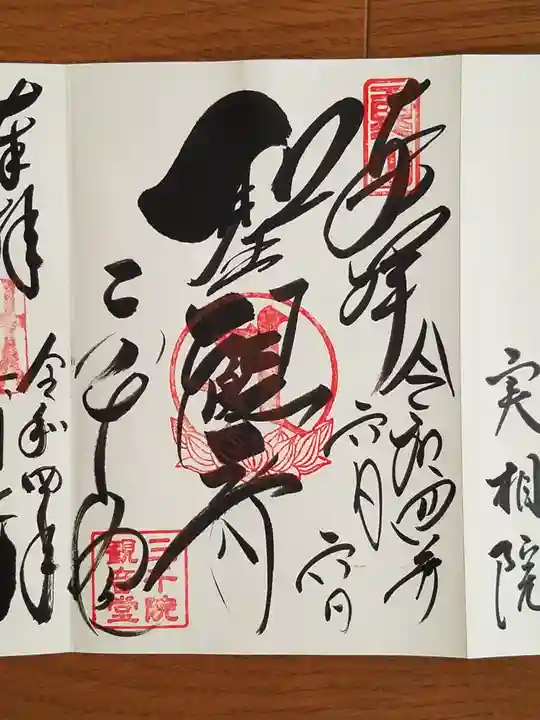 実相院
奉拝
令和四年
六月
六日
聖観音
三千院
三千院
観音堂
奉拝
令和四年